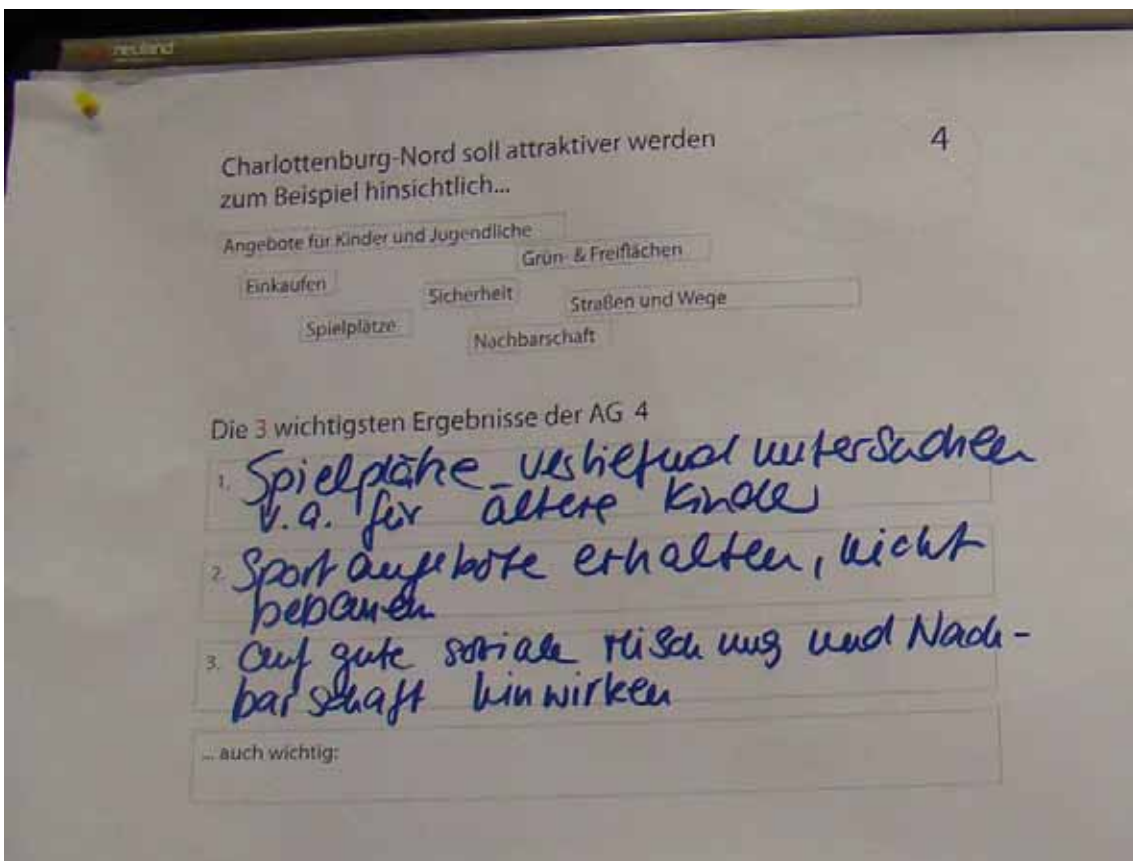 neuland
4
Charlottenburg-Nord soll attraktiver werden
zum Beispiel hinsichtlich...
Angebote für Kinder und Jugendliche
Grün- & Freiflächen
Einkaufen
Sicherheit
Straßen und Wege
Spielplätze
Nachbarschaft
Die 3 wichtigsten Ergebnisse der AG 4
1. Spielplätze vertiefend untersuchen
v.a. für ältere Kinder
2. Sportangebote erhalten, nicht
bebauen
3. auf gute soziale Mischung und Nach-
barschaft hinwirken
... auch wichtig: